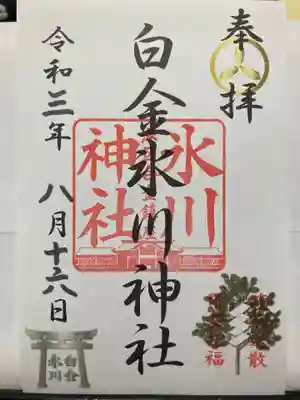 奉拝
白金氷川神社
氷川
神社
令和三年 八月十六日
白金
氷川
散
福